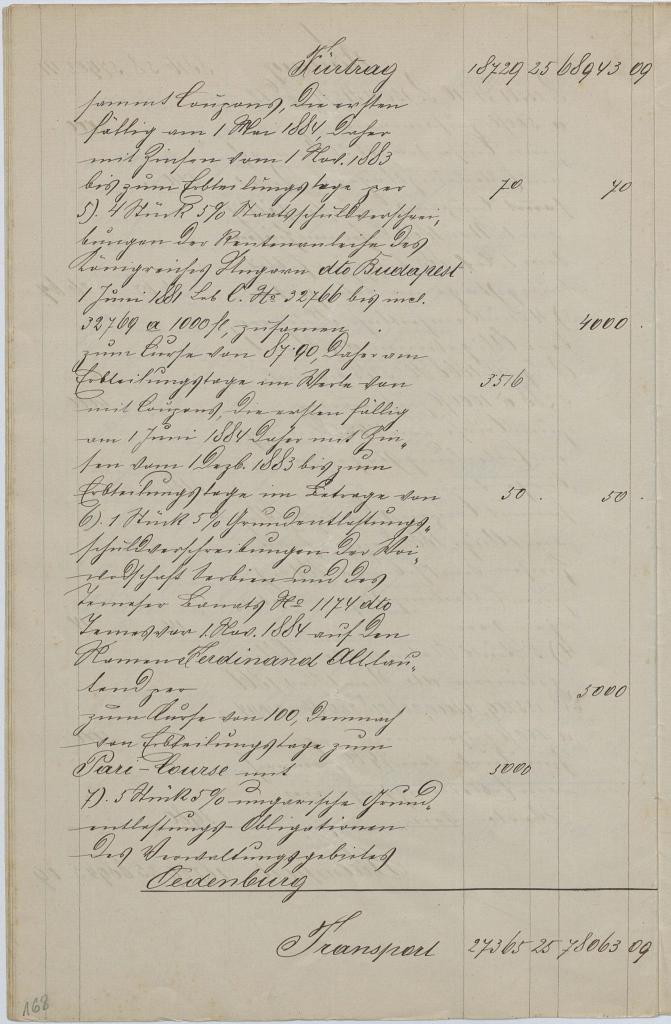 Fürtrag 18729 25 68943 09
sammt Coupons, die ersten
fällig am 1 Mai 1884, daher
mit Zinsen vom 1 Nov. 1883
bis zum Erbteilungstage per 70 70
5). 4 Stück 5% Staatsschuldverschrei„
bungen der Rentenanleihe des
Königreiches Ungarn dto Budapest
1 Juni 1881 Lab C. No 32766 bis incl.
32769 a 1000 fl, zusamen . 4000 .
zum Curse von 87·90, daher am
Erbteilungstage im Werte von 3516
mit Coupons, die ersten fällig
am 1 Juni 1884 daher mit Zin„
sen vom 1 Dezb. 1883 bis zum
Erbteilungstage im Betrage von 50 . 50 .
6). 1 Stück 5% Grundentlastungs„
schuldverschreibungen der Woi„
wodschaft Serbien und des
Temeser Banats No 1174 dto
Temesvar 1. Nov. 1884 auf den
Namens Ferdinand Alt lau„
tend per 5000
zum Curse von 100, demnach
von Erbteilungstage zum
Pari-Course mit 5000
7). 5 Stück 5% ungarische Grund„
entlastungs-Obligationen
des Verwaltungsgebietes
Oedenburg
Transport 27365 25 78063 09
168